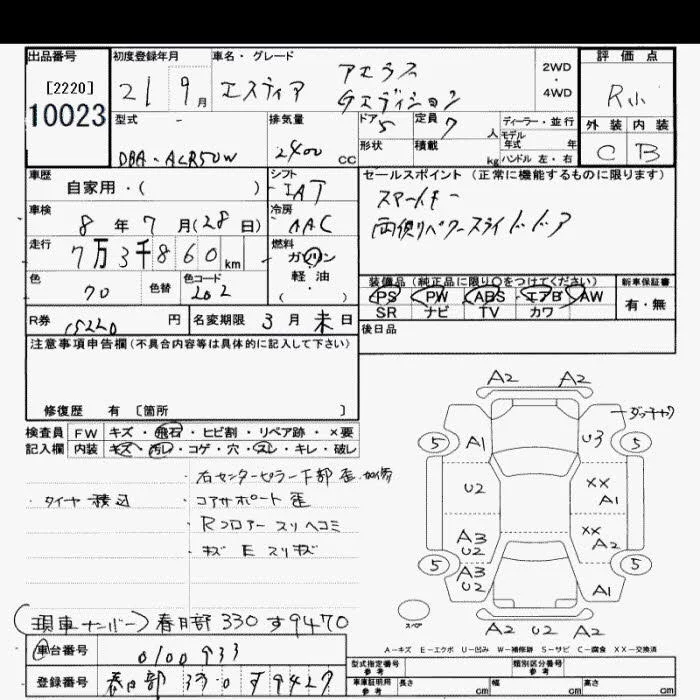 出品番号 初度登録年月 車名・グレード 評価点
[2220]
10023
21 9月 エスティマ アエラス
Gエディション
2WD
・
4WD
R小
外装 内装
C B
型式 排気量 ドア 5 定員 7 人 ディーラー・並行
DBA-ACR50W 2400 CC
形状 積載 kg モデル年式 年
ハンドル 左・右
車歴 自家用・( ) シフト IAT
セールスポイント (正常に機能するものに限ります)
スマートキー
両側パワースライドドア
車検 8年7月(28日) 冷房 AAC
走行 7万3千860km
燃料 ガソリン
軽・油
・( )
色 70 色替 色コード 202
装備品 (純正品に限り○をつけてください)
PS PW ABS エアB AW
SR ナビ TV カワ
新車保証書
有・無
R券 15220 円 名変期限 3月末日
後日品
注意事項申告欄 (不具合内容等は具体的に記入して下さい)
修復歴 有 [箇所 ]
検査員 FW キズ・飛石・ヒビ割・リペア跡・×要
記入欄 内装 キズ・汚レ・コゲ・穴・スレ・キレ・破レ
・右センターピラー下部 歪
・タイヤ積込 ・コアサポート歪
・Rフロアー スリ ヘコミ
・キズ E スリキズ
A2 A2
5 A1 U3 5
U2 XX A1
A3 U2 XX A2
5 A3 U2 A1 5
A2 U2 A2
スペア
(現車ナンバー) 春日部 330 す 9470
A-キズ E-エクボ U-凹み W-補修跡 S-サビ C-腐食 XX-交換済
車台番号 0100933
登録番号 春日部 330 す 9427
型式指定番号 参考 類別区分番号 参考
車車証明用 参考 長さ cm 幅 cm 高さ cm